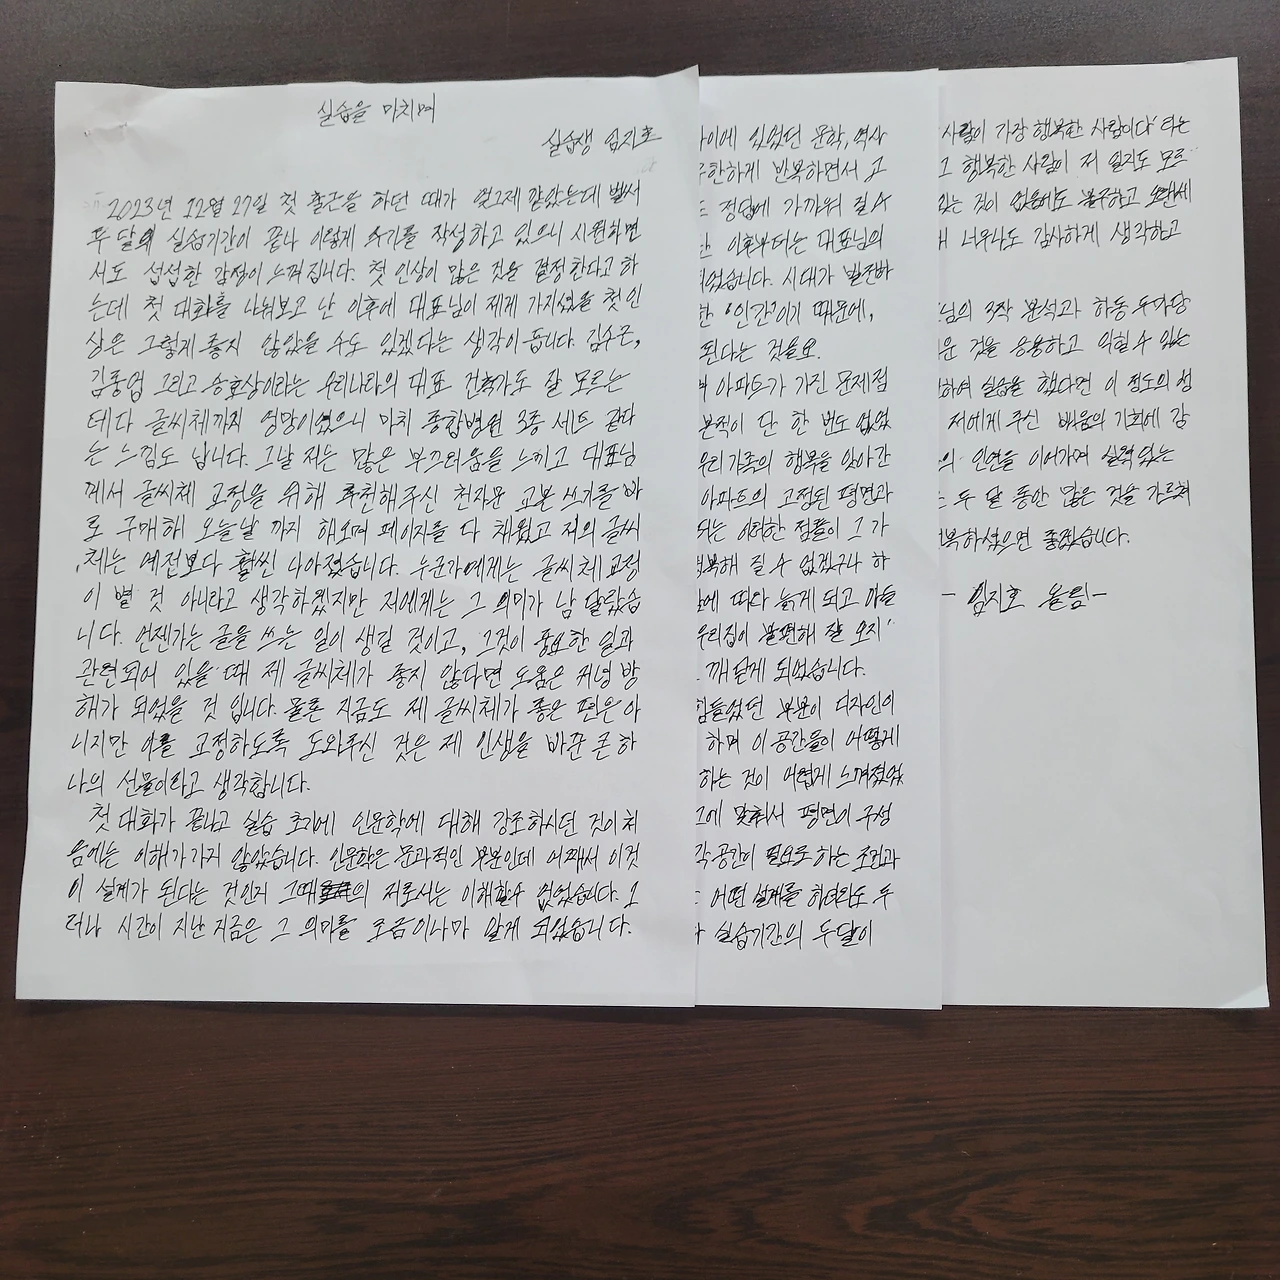 실습을 마치며
실습생 임지호
2023년 12월 27일 첫 출근을 하던 때가 엊그제 같았는데 벌써
두 달의 실습기간이 끝나 이렇게 후기를 작성하고 있으니 시원하면
서도 섭섭한 감정이 느껴집니다. 첫 인상이 많은 것을 결정한다고 하
는데 첫 대화를 나눠보고 난 이후에 대표님이 제게 가지셨을 첫 인
상은 그렇게 좋지 않았을 수도 있겠다는 생각이 듭니다. 김수근,
김중업 그리고 승효상이라는 우리나라의 대표 건축가도 잘 모르는
데다 글씨체까지 엉망이였으니 마치 종합병원 3종 세트 같다
는 느낌도 납니다. 그날 저는 많은 부끄러움을 느끼고 대표님
께서 글씨체 교정을 위해 추천해주신 천자문 교본 쓰기를 바
로 구매해 오늘날 까지 해오며 페이지를 다 채웠고 저의 글씨
체는 예전보다 훨씬 나아졌습니다. 누군가에게는 글씨체 교정
이 별 것 아니라고 생각하겠지만 저에게는 그 의미가 남 달랐습
니다. 언젠가는 글을 쓰는 일이 생길 것이고, 그것이 중요한 일과
관련되어 있을 때 제 글씨체가 좋지 않다면 도움은 커녕 방
해가 되었을 것 입니다. 물론 지금도 제 글씨체가 좋은 편은 아
니지만 이를 교정하도록 도와주신 것은 제 인생을 바꾼 큰 하
나의 선물이라고 생각합니다.
첫 대화가 끝나고 실습 초기에 인문학에 대해 강조하시던 것이 처
음에는 이해가 가지 않았습니다. 인문학은 문과적인 부분인데 어째서 이것
이 설계가 된다는 것인지 그때의 저로서는 이해할수 없었습니다. 그
러나 시간이 지난 지금은 그 의미를 조금이나마 알게 되었습니다.
사이에 있었던 문학, 역사
무한하게 반복하면서 고
정답에 가까워 질수
이후부터는 대표님의
되었습니다. 시대가 발전하
한 '인간'이기 때문에,
된다는 것을요.
아파트가 가진 문제점
본적이 단 한 번도 없었
우리가족의 행복을 앗아간
아파트의 고정된 평면과
되는 이러한 점들이 그 가
행복해 질 수 없겠구나 하
에 따라 늙게 되고 아들
우리집이 불편해 잘 오지
깨닫게 되었습니다.
힘들었던 부분이 디자인의
하며 이 공간들이 어떻게
하는 것이 어렵게 느껴졌었
그에 맞춰서 평면이 구성
각 공간이 필요로 하는 조건과
어떤 설계를 하더라도 두
실습기간의 두달이
사람이 가장 행복한 사람이다' 라는
그 행복한 사람이 저 일지도 모르
있는 것이 없음에도 불구하고 오랜세
너무나도 감사하게 생각하고
님의 3작 분석과 하동 두마당
운 것을 응용하고 익힐 수 있는
하여 실습을 했다면 이 정도의 성
저에게 주신 배움의 기회에 감
의 인연을 이어가며 실력있는
두 달 동안 많은 것을 가르쳐
행복하셨으면 좋겠습니다.
- 임지호 올림 -